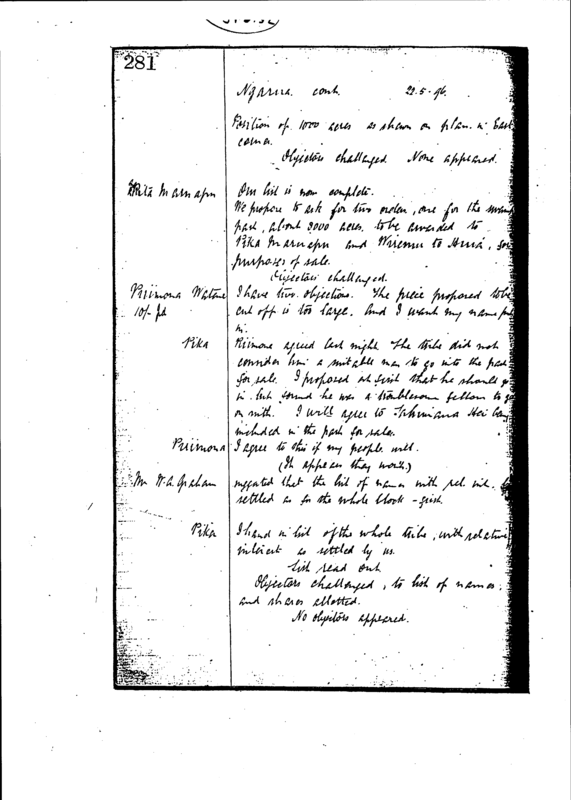 281
Ngarua cont. 22.5.96.
Position of 1000 acres as shewn on plan in East
corner.
Objectors challenged None appeared.
Our list is now complete.
We propose to ask for two orders, one for the
part, about 3000 acres to be awarded to
Pika Maruapu and Wiremu te
purposes of sale.
Objectors challenged.
I have two objections. The piece proposed to be
10/- pd cut off is too large. And I want my name put
in.
Pika Piimona agreed last night The tribe did not
consider him a suitable man to go into the part
for sale. I proposed at first that he should go
in but found he was a troublesome fellow to go
on with. I will agree to being
included in the part for sale.
Piimona I agree to this if my people will.
(It appears they won't)
Mr W.A. Graham suggested that the list of names with rel. int. be
settled as for the whole block - first.
Pika I hand in list of the whole tribe, with relative
interest as settled by us.
List read out
Objectors challenged, to list of names,
and shares allotted.
No objectors appeared.